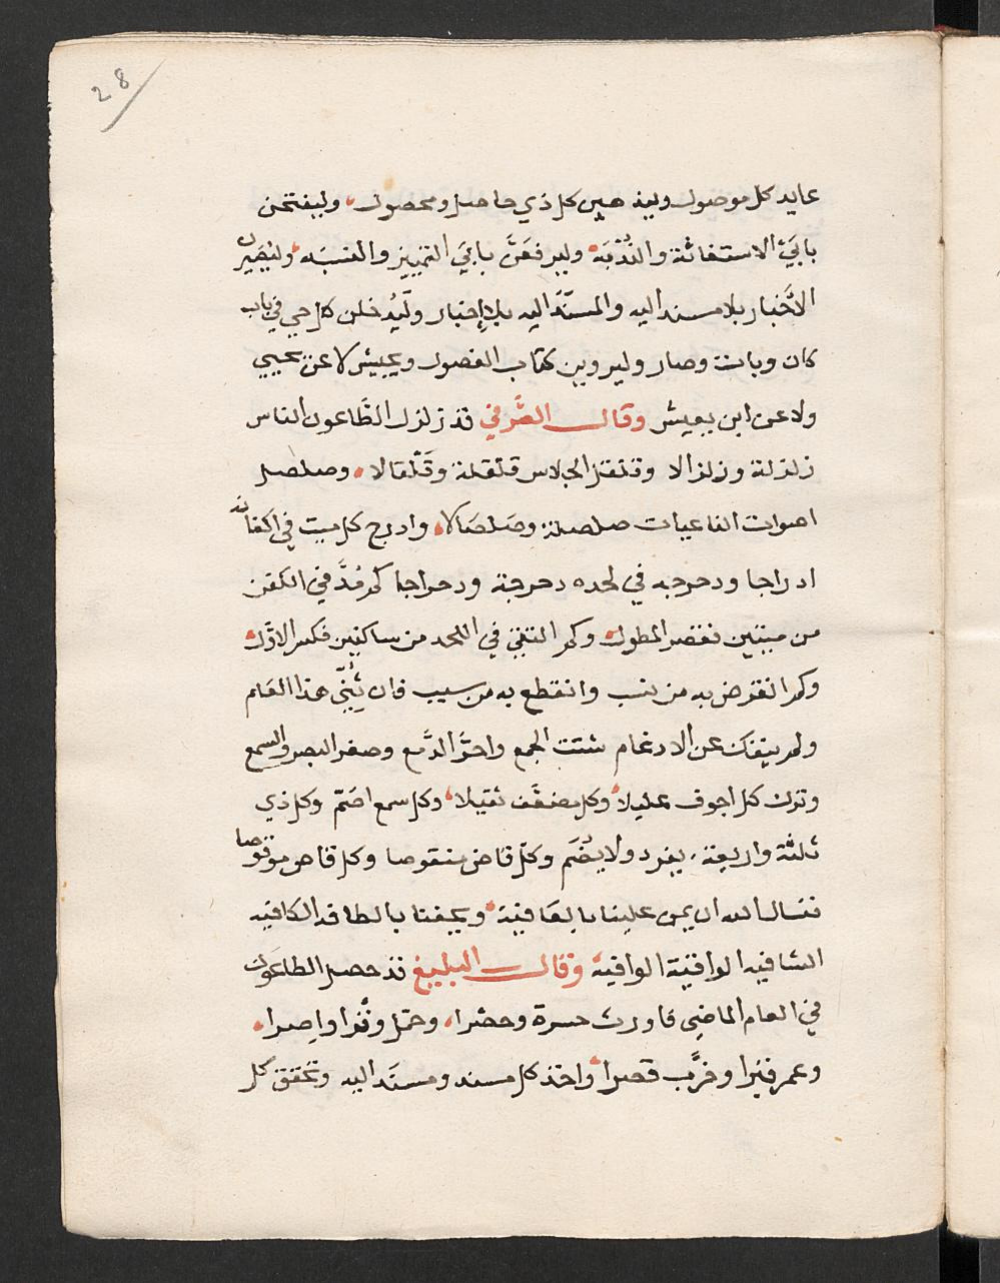 28
عايد كل موصول وليذهبن كل ذي حاصل ومحصول، وليفتحن
بابَيْ الاستغاثة والنُّدْبَه، وليرفعَنَّ بابَي التمييز والنسبَه، وليُصَيّرن
الاَخبار بلا مسند اليه والمسنَد اليه بلا إخبار وليُدخلن كل حي في باب
كان وبات وصار وليروين كتاب الفصول ويجيش لا عن يحيي
ولا عن ابن يعيش وقال الصَّرفي قد زلزل الطَّاعون الناس
زلزلة وزلزالا وقلقل الجلاس قلقلة وقَلْقالا، وصلصل
اصوات الناعيات صلصلة وصَلصَالا، وادرج كل ميت في اكفانه
ادراجا ودحرجه في لحده دحرجة ودحراجا كم مُدَّ في الكفن
من ميتين فقصر المطول، وكم التقي في اللحد من ساكنين فكسر الاوَّل،
وكم انقرض به من نسب وانقطع به من سبب فان ثُنّي هذا العام
ولم ينفك عن الادغام شتت الجمع واحرَّ الدَّمع وصغر البصر والسمع
وترك كل اجوف عليلا، وكل مضعَّف ثقيلا، وكل سمع اصَمّ وكل ذي
ثلثة واربعة، يفرد ولا يُضَم وكلّ قاض منقوصا وكل قاص موقوصا
فنسال الله ان يمن علينا بالعافيَة، ويحفنا بالطافه الكافيه
الشافيه الواقيَة الوافيه وقال البليغ قد حصل الطاعون
في العام الماضي فاورث حسرة وحصْرا، وحمل وقْرا واصرا،
وعمر قبْرا وخرَّب قصرا، واخذ كل مسند ومسنَد اليه وتحقق كل